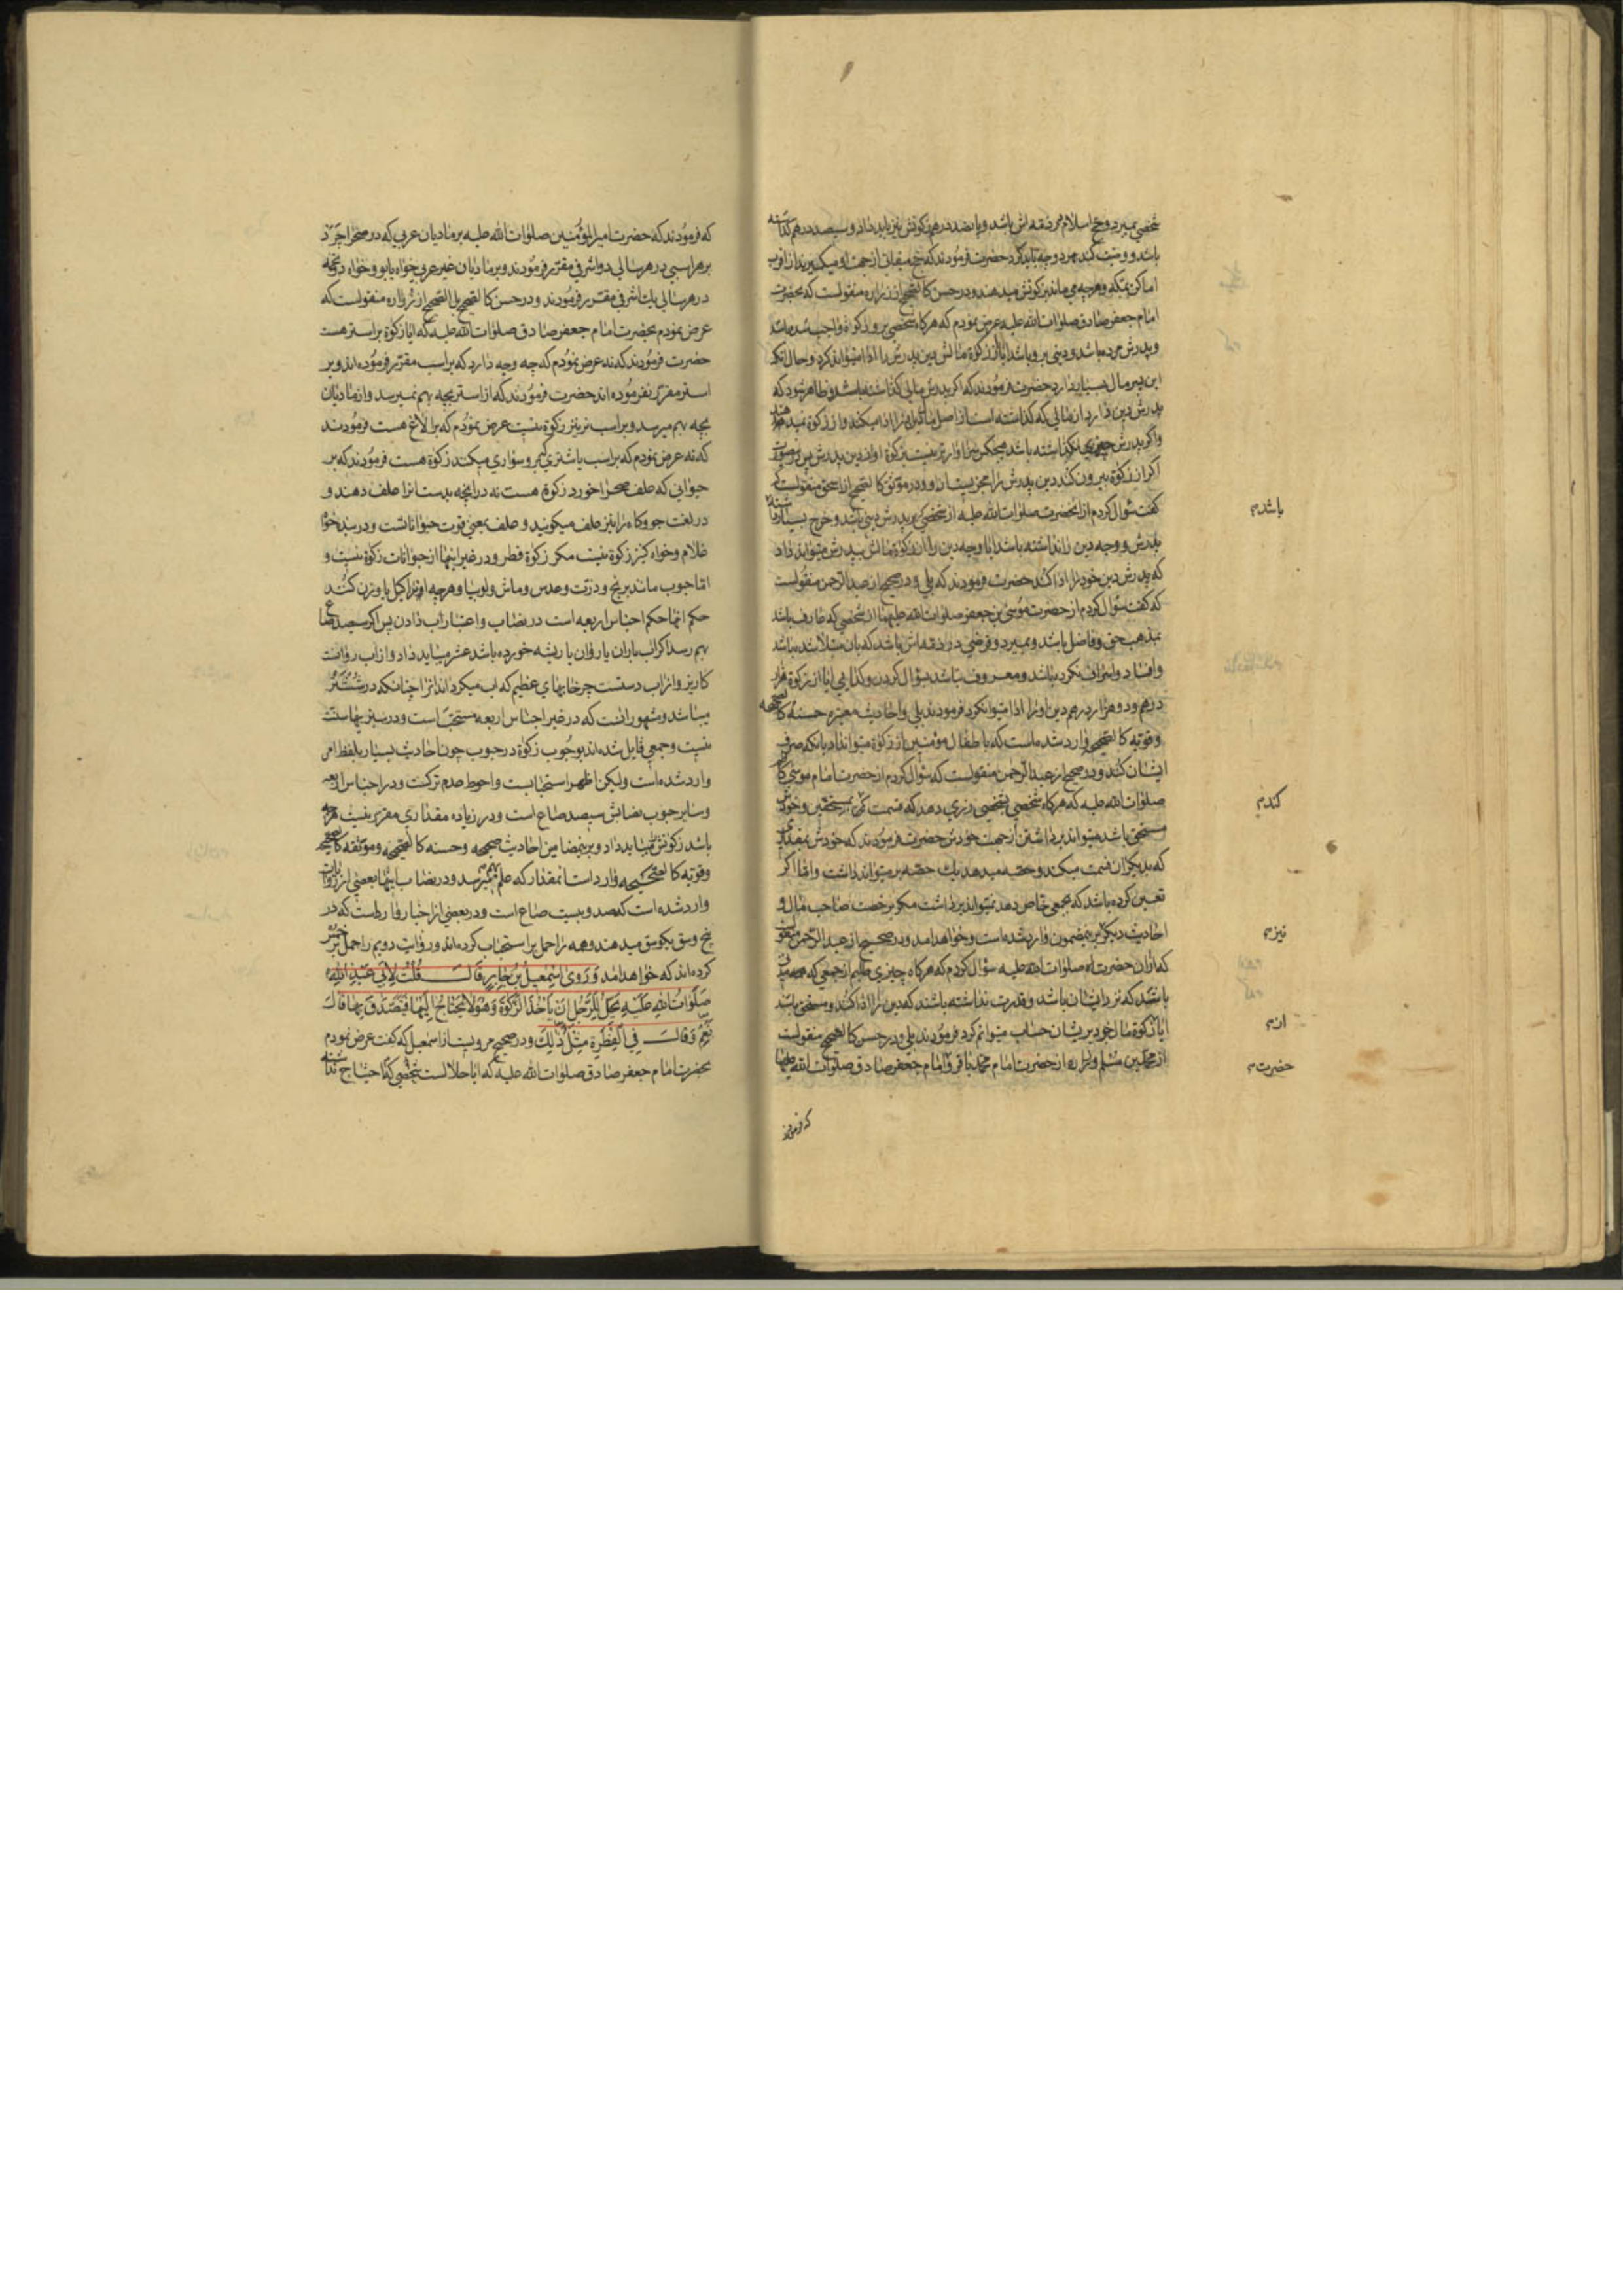 شخصی بمیرد و حج اسلام در ذمه اش باشد و پانصد درهم زکوتش نیز باید داد و سیصد درهم گذاشته
باشد و وصیت کند بهر دو چه باید کرد حضرت فرمودند که حج میقاتی از جهت او میگیرند از اقرب
اماکن بمکه و هرچه می ماند بزکوتش میدهند و در حسن کالصحیح از زراره منقولست که بحضرت
امام جعفر صادق صلوات الله علیه عرض نمودم که هرگاه شخصی برو زکوة واجب شده باشد
و پدرش مرده باشد و دینی برو باشد ایا از زکوة مالش دین پدرش را ادا میتواند کرد و حال آنکه
این پسر مال بسیار دارد حضرت فرمودند که اگر پدرش مالی گذاشته باشد و ظاهر شود که
پدرش دین دارد از مالی که گذاشته است از اصل مال دین او را ادا میکند و از زکوة نمیدهد
و اگر پدرش چیزی نگذاشته باشد هیچکس سزاوارتر نیست بزکوة او از دین پدرش پس
اگر از زکوة بیرون کند دین پدرش را مجزیست ازو و در موثق کالصحیح از اسحق منقولست که
گفت سؤال کردم از انحضرت صلوات الله علیه از شخصی که بر پدرش دینی باشد و خرج بسیار داشته باشد
پدرش و وجه دین را نداشته باشد ایا وجه دین را از زکوة مالش بپدرش میتواند داد
که پدرش دین خود را ادا کند حضرت فرمودند که بلی و در صحیح از عبد الرحمن منقولست
که گفت سؤال کردم از حضرت موسی بن جعفر صلوات الله علیهما از شخصی که عارف باشد
بمذهب حق و فاضل باشد و بمیرد و قرضی در ذمه اش باشد که بان مبتلا شده باشد
و افساد و اسراف نکرده باشد و معروف نباشد بسؤال کردن و کدایی ایا از زکوة هزار
درهم و دو هزار درهم دین او را ادا میتوان کرد فرمودند بلی و احادیث معتبره حسنه کالصحیحه
و قویه کالصحیح وارد شده است که باطفال مؤمنین از زکوة میتوان داد بانکه صرف
ایشان کنند و در صحیح از عبد الرحمن منقولست که سؤال کردم از حضرت امام موسی کاظم
صلوات الله علیه که هرگاه شخصی بشخصی زری دهد که قسمت کن بمستحقین و خودش
مستحق باشد میتواند برداشتن از جهت خودش حضرت فرمودند که خودش بمقداری
که بدیکران قسمت میکند و حصه میدهد یک حصه بر میتواند داشت و اما اگر
تعیین کرده باشد که بجمعی خاص دهد نمیتواند برداشت مگر برخصت صاحب مال و
احادیث دیکر برینمضمون وارد شده است و خواهد امد و در صحیح از عبد الرحمن منقولست
که ازان حضرت صلوات الله علیه سؤال کردم که هرگاه چیزی طلبم از جمعی که مدتی
باشد که نزد ایشان باشد و قدرت نداشته باشند که دین را ادا کنند و مستحق باشند
ایا از زکوة مال خود بریشان حساب میتوانم کرد فرمودند بلی و در حسن کالصحیح منقولست
از محمد بن مسلم و زراره از حضرت امام محمد باقر و امام جعفر صادق صلوات الله علیهما
باشد م
کند م
نیز م
از م
حضرت م
که فرمودند
که فرمودند که حضرت امیر المؤمنین صلوات الله علیه بر مادیان عربی که در صحرا چرد
بر هر اسبی در هر سالی دو اشرفی مقرر فرمودند و بر مادیان غیر عربی خواه یابو و خواه دو تخمه
در هر سالی یک اشرفی مقرر فرمودند و در حسن کالصحیح بل الصحیح از زراره منقولست که
عرض نمودم بحضرت امام جعفر صادق صلوات الله علیه که ایا زکوة بر استر هست
حضرت فرمودند که نه عرض نمودم که چه وجه دارد که بر اسب مقرر فرموده اند و بر
استر مقرر نفرموده اند حضرت فرمودند که از استر بچه بهم نمیرسد و از مادیان
بچه بهم میرسد و بر اسب نر نیز زکوة نیست عرض نمودم که بر الاغ هست فرمودند
که نه عرض نمودم که بر اسب یا شتری که برو سواری میکنند زکوة هست فرمودند که بر
حیوانی که علف صحرا خورد زکوة هست نه در انچه بدست انرا علف دهند و
در لغت جو و کاه را نیز علف میکویند و علف بمعنی قوت حیوانات و در بنده خواه
غلام و خواه کنیز زکوة نیست مکر زکوة فطر و در غیر اینها از حیوانات زکوة نیست و
اما حبوب مانند برنج و ذرت و عدس و ماش و لوبیا و هرچه او را کیل یا وزن کنند
حکم انها حکم اجناس اربعه است در نصاب و اعتبار اب دادن پس اگر سیصد صاع
بهم رسد اگر اب باران یا روان یا ریشه خورده باشد عشر میباید داد و از اب روانست
کاریز و از اب دستست چرخابهای عظیم که اب میگرداند انرا چنانکه در شُشتَر
میباشد و مشهور انست که در غیر اجناس اربعه مستحب است و در سبزیها سنت
نیست و جمعی قایل شده اند بوجوب زکوة در حبوب چون احادیث بسیار بلفظ امر
وارد شده است ولیکن اظهر استحبابست و احوط عدم ترکست و در اجناس اربعه
و سایر حبوب نصابش سیصد صاع است و در زیاده مقداری مقرر نیست هرچه
باشد زکوتش میباید داد و برینمضامین احادیث صحیحه و حسنه کالصحیحه و موثقه کالصحیحه
و قویه کالصحیحه وارد است انمقدار که علم بهم میرسد و در نصاب اینها بعضی از روایات
وارد شده است که صد و بیست صاع است و در بعضی از اخبار وارد است که در
پنج وسق یکوسق میدهند و همه را حمل بر استحباب کرده اند و روایت دویم را حمل بر خمس
کرده اند که خواهد امد وَ رَوی اِسْمعیلُ بْنُ جابِرٍ قالَ قُلْتُ لِاَبی عَبْدِ اللهِ
صَلَواتُ اللهِ عَلَیْهِ یَحِلُّ لِلرَّجُلِ اَنْ یَأْخُذَ الزَّکوةَ وَ هُوَ لا یَحْتاجُ اِلَیْها فَیَتَصَدَّقَ بِها قالَ
نَعَمْ وَ قالَ فِی الْفِطْرَةِ مِثْلُ ذلِکَ و در صحیح مرویست از اسمعیل که گفت عرض نمودم
بحضرت امام جعفر صادق صلوات الله علیه که ایا حلالست شخصی که احتیاج نداشته